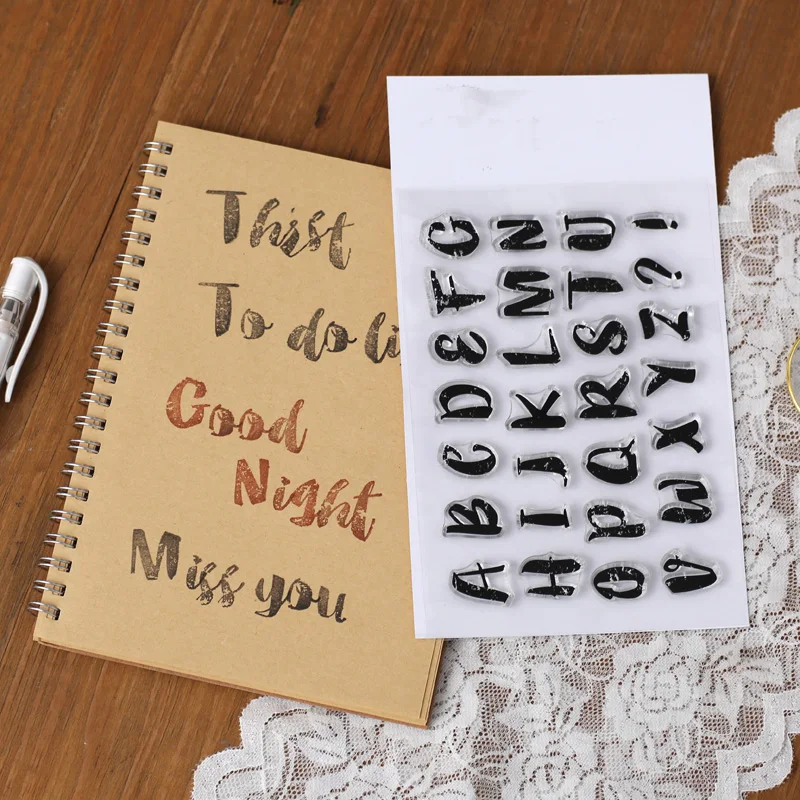 Thist
To do li
Good
Night
Miss you
A B C D E F G
H I J K L M N
O P Q R S T U
V W X Y Z ? !